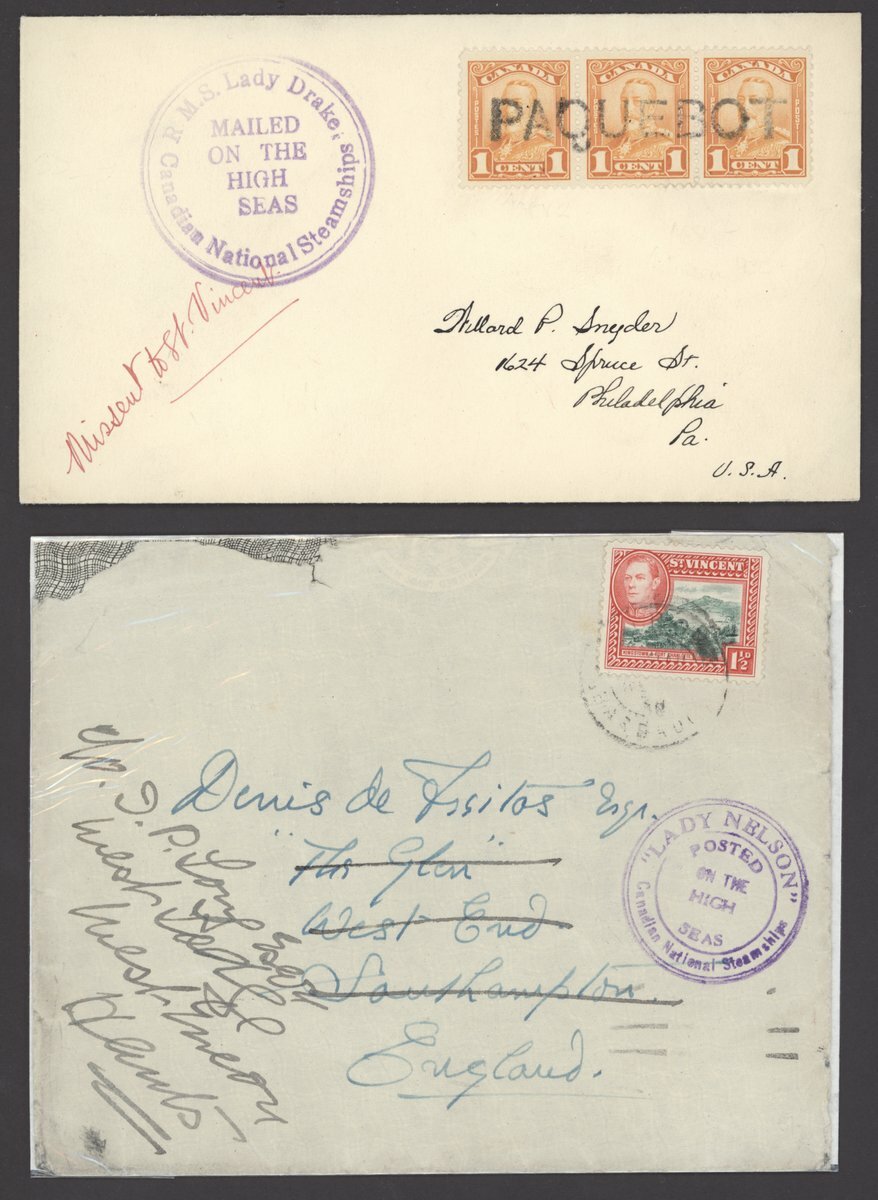 R.M.S. Lady Drake
MAILED
ON THE
HIGH
SEAS
Canadian National Steamships
CANADA CANADA CANADA
POSTES POSTES POSTES
PAQUEBOT
1 CENT 1 1 CENT 1 1 CENT 1
Missent to St. Vincent
Willard P. Snyder
1624 Spruce St.
Philadelphia
Pa.
U.S.A.
ST VINCENT
1½D
BARBADO
Denis de
Esqr.
"The Glen"
West End
Southampton.
England.
"LADY NELSON"
POSTED
ON THE
HIGH
SEAS
Canadian National Steamships
West Meon
Hants